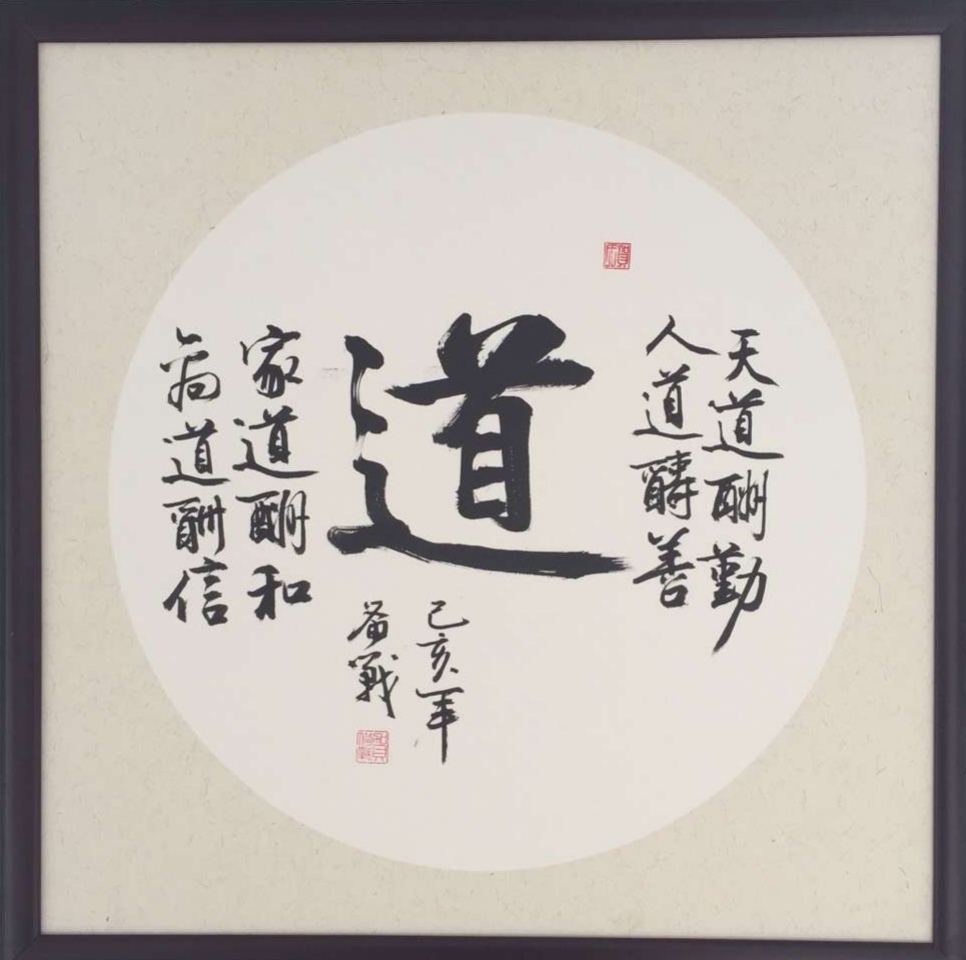 天道酬勤
人道醻善
道
家道酬和
商道酬信
己亥年
备戰